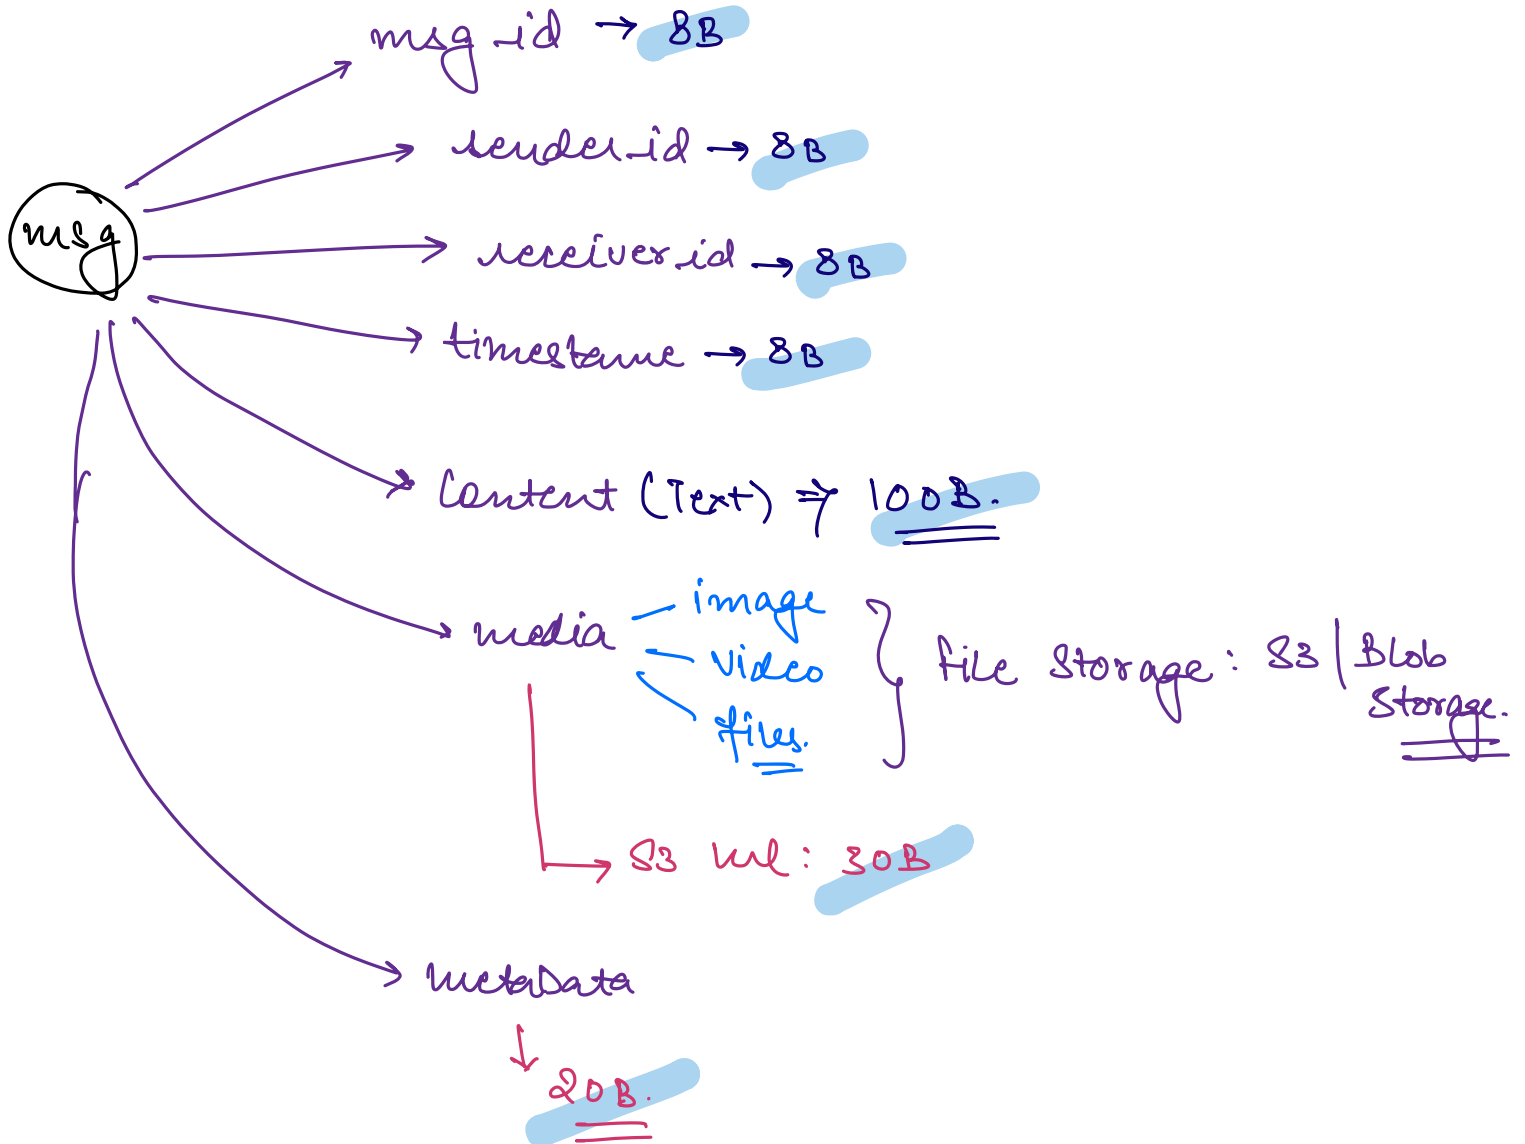 msg_id → 8B
sender_id → 8B
msg
receiver_id → 8B
timestame → 8B
Content (Text) ⇒ 100B.
media
image
video
files.
file storage: S3 | Blob
storage.
S3 url: 30B
metaData
20B.